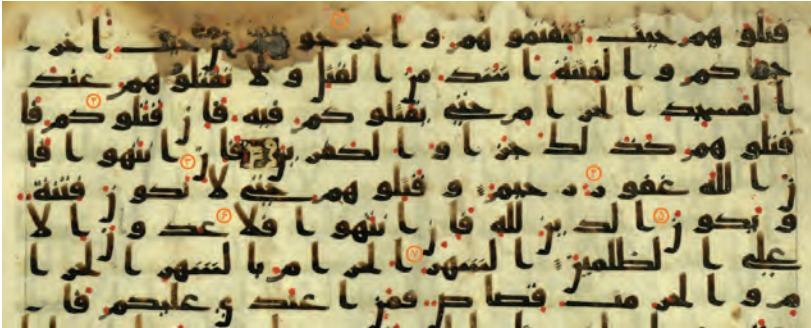 قتلو هم حيث ثقفتمو هم و ا خر جو ۱ هم من حيث ا خر
جو كم و ا لفتنة ا شد من ا لقتل و لا تقتلو هم عند
ا لمسجد ا لحر ا م حتى يقتلو كم فيه فا ن قتلو كم ۲ فا
قتلو هم كذ لك جز ا و ا لكفر ين فا ن ۳ ا نتهو ا فا
ن ا لله غفو ر ۴ ر حيم و قتلو هم حتى لا تكو ن فتنة
و يكو ن ۵ ا لد ين لله فا ن ا نتهو ا فلا ۶ عد و ن ا لا
على ا لظلمين ا لشهر ۷ ا لحر ا م با لشهر ا لحر ا
م و ا لحر مت قصا ص فمن ا عتد ى عليكم فا